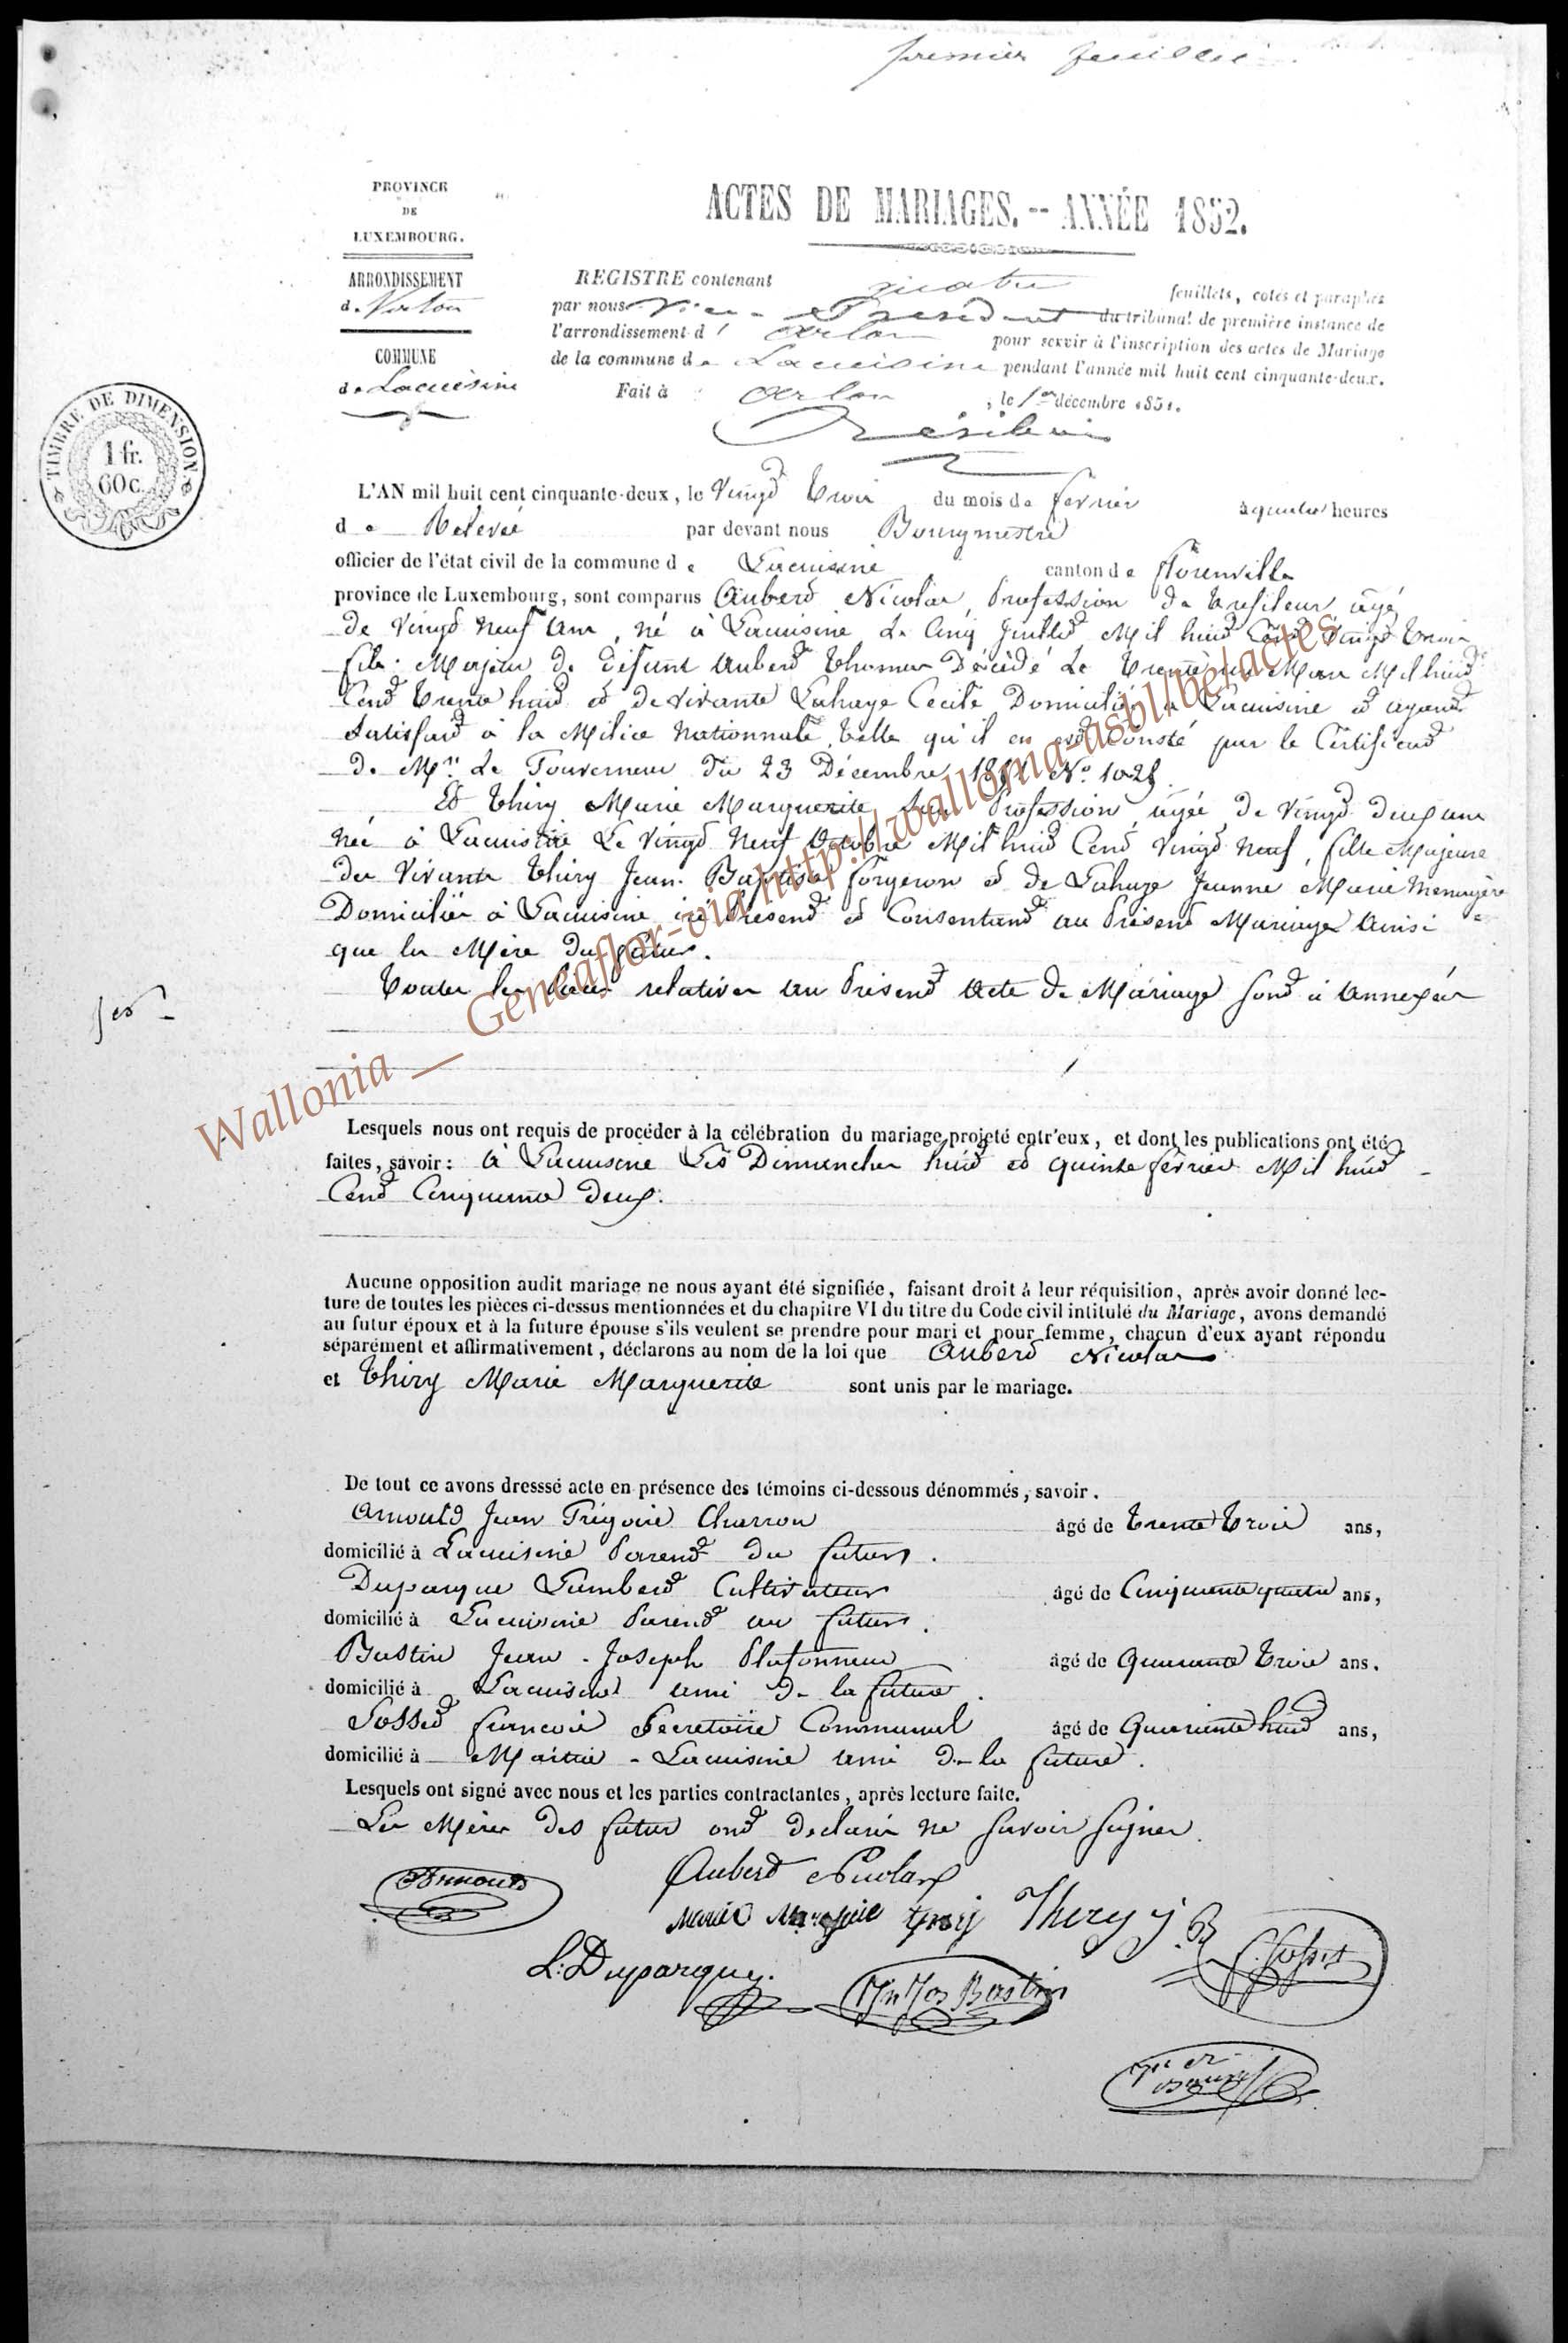 premier feuillet
PROVINCE
DE
LUXEMBOURG.
ARRONDISSEMENT
de Virton
COMMUNE
de Lacuisine
TIMBRE DE DIMENSION
1 fr.
60 c.
ACTES DE MARIAGES. -- ANNÉE 1852.
REGISTRE contenant quatre feuillets, cotés et paraphés
par nous Vice-Président du tribunal de première instance de
l'arrondissement d' Arlon pour servir à l'inscription des actes de Mariage
de la commune de Lacuisine pendant l'année mil huit cent cinquante-deux.
Fait à Arlon, le 1er décembre 1851.
L'AN mil huit cent cinquante-deux, le Vingt Trois du mois de fevrier à quatre heures
de Relevée par devant nous Bourgmestre
officier de l'état civil de la commune de Lacuisine canton de florenville
province de Luxembourg, sont comparus Aubert Nicolas, Profession de trefileur âgé
de Vingt Neuf ans, né à Lacuisine Le Cinq Juillet Mil huit Cent Vingt Trois
fils Majeur de défunt Aubert Thomas Décédé Le Trente un Mars Mil huit
Cent Trente huit et de Vivante Lahaye Cecile Domiciliée à Lacuisine et ayant
Satisfait à la Milice Nationnale telle qu'il en est Consté par le Certificat
de Mr. Le Gouverneur du 23 Décembre No. 1028
Et Thiry Marie Marguerite San Profession, âgée de Vingt deux ans
née à Lacuisine Le Vingt Neuf Octobre Mil huit Cent Vingt Neuf, fille Majeure
des Vivants Thiry Jean Baptiste forgeron et de Lahaye Jeanne Marie Menagère
Domiciliés à Lacuisine ici Présent et Consentant au Présent Mariage Ainsi
que la Mère du futur.
Toutes les pièces relatives au Présent Acte de Mariage sont ci Annexées
Wallonia __ Geneaflor-via http://wallonia-asbl/be/actes
Lesquels nous ont requis de procéder à la célébration du mariage projeté entr'eux, et dont les publications ont été
faites, savoir : à Lacuisine Les Dimanches huit et quinze fevrier Mil huit
Cent Cinquante deux.
Aucune opposition audit mariage ne nous ayant été signifiée, faisant droit à leur réquisition, après avoir donné lec-
ture de toutes les pièces ci-dessus mentionnées et du chapitre VI du titre du Code civil intitulé du Mariage, avons demandé
au futur époux et à la future épouse s'ils veulent se prendre pour mari et pour femme, chacun d'eux ayant répondu
séparément et affirmativement, déclarons au nom de la loi que Aubert Nicolas
et Thiry Marie Marguerite sont unis par le mariage.
De tout ce avons dresssé acte en présence des témoins ci-dessous dénommés, savoir.
Arnould Jean Grégoire Charron âgé de Trente Trois ans,
domicilié à Lacuisine Parent du futur.
Duparque Lambert Cultivateur âgé de Cinquante quatre ans,
domicilié à Lacuisine Parent au futur.
Bastin Jean-Joseph Plafonneur âgé de Quarante Trois ans.
domicilié à Lacuisine ami de la future.
Gosset francois Secretaire Communal âgé de Quarante huit ans,
domicilié à Martué-Lacuisine ami de la future.
Lesquels ont signé avec nous et les parties contractantes, après lecture faite.
Les Mères des futur ont declarés ne Savoir Signer.
Arnould
Aubert Nicolas
Marie thiry Thiry j B
L: Duparque.
Jn Jos Bastin